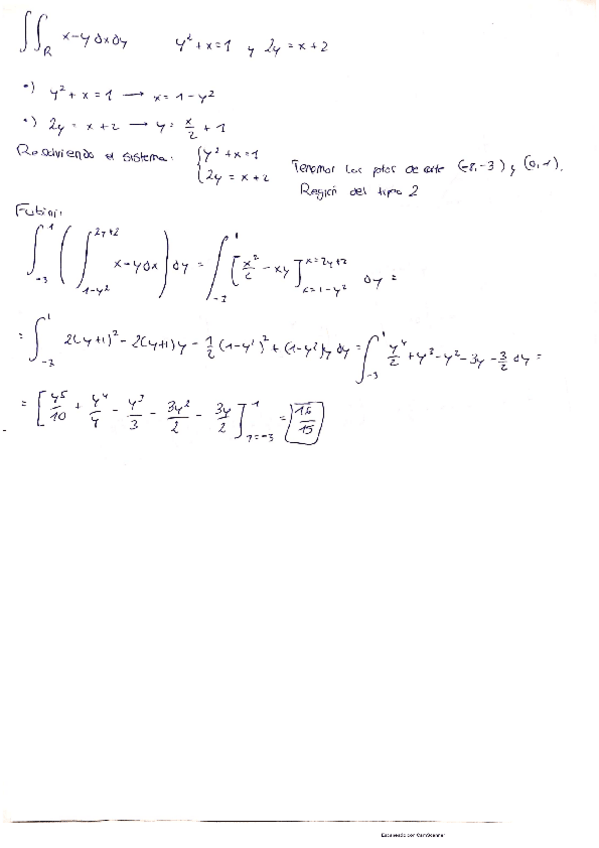 ∬_R x-y dx dy    y²+x=1 y 2y=x+2
•) y²+x=1 → x=1-y²
•) 2y=x+2 → y=x/2+1
Resolviendo el sistema: {y²+x=1 {2y=x+2 Tenemos los ptos de corte (-8,-3) y (0,1).
Región del tipo 2
Fubini:
∫_{-3}^{1} (∫_{1-y²}^{2y+2} x-y dx) dy = ∫_{-3}^{1} [x²/2 - xy]_{x=1-y²}^{x=2y+2} dy =
= ∫_{-3}^{1} 2(y+1)² - 2(y+1)y - 1/2(1-y²)² + (1-y²)y dy = ∫_{-3}^{1} y⁴/2 + y³ - y² - 3y - 3/2 dy =
= [y⁵/10 + y⁴/4 - y³/3 - 3y²/2 - 3y/2]_{y=-3}^{1} =
Escaneado por CamScanner